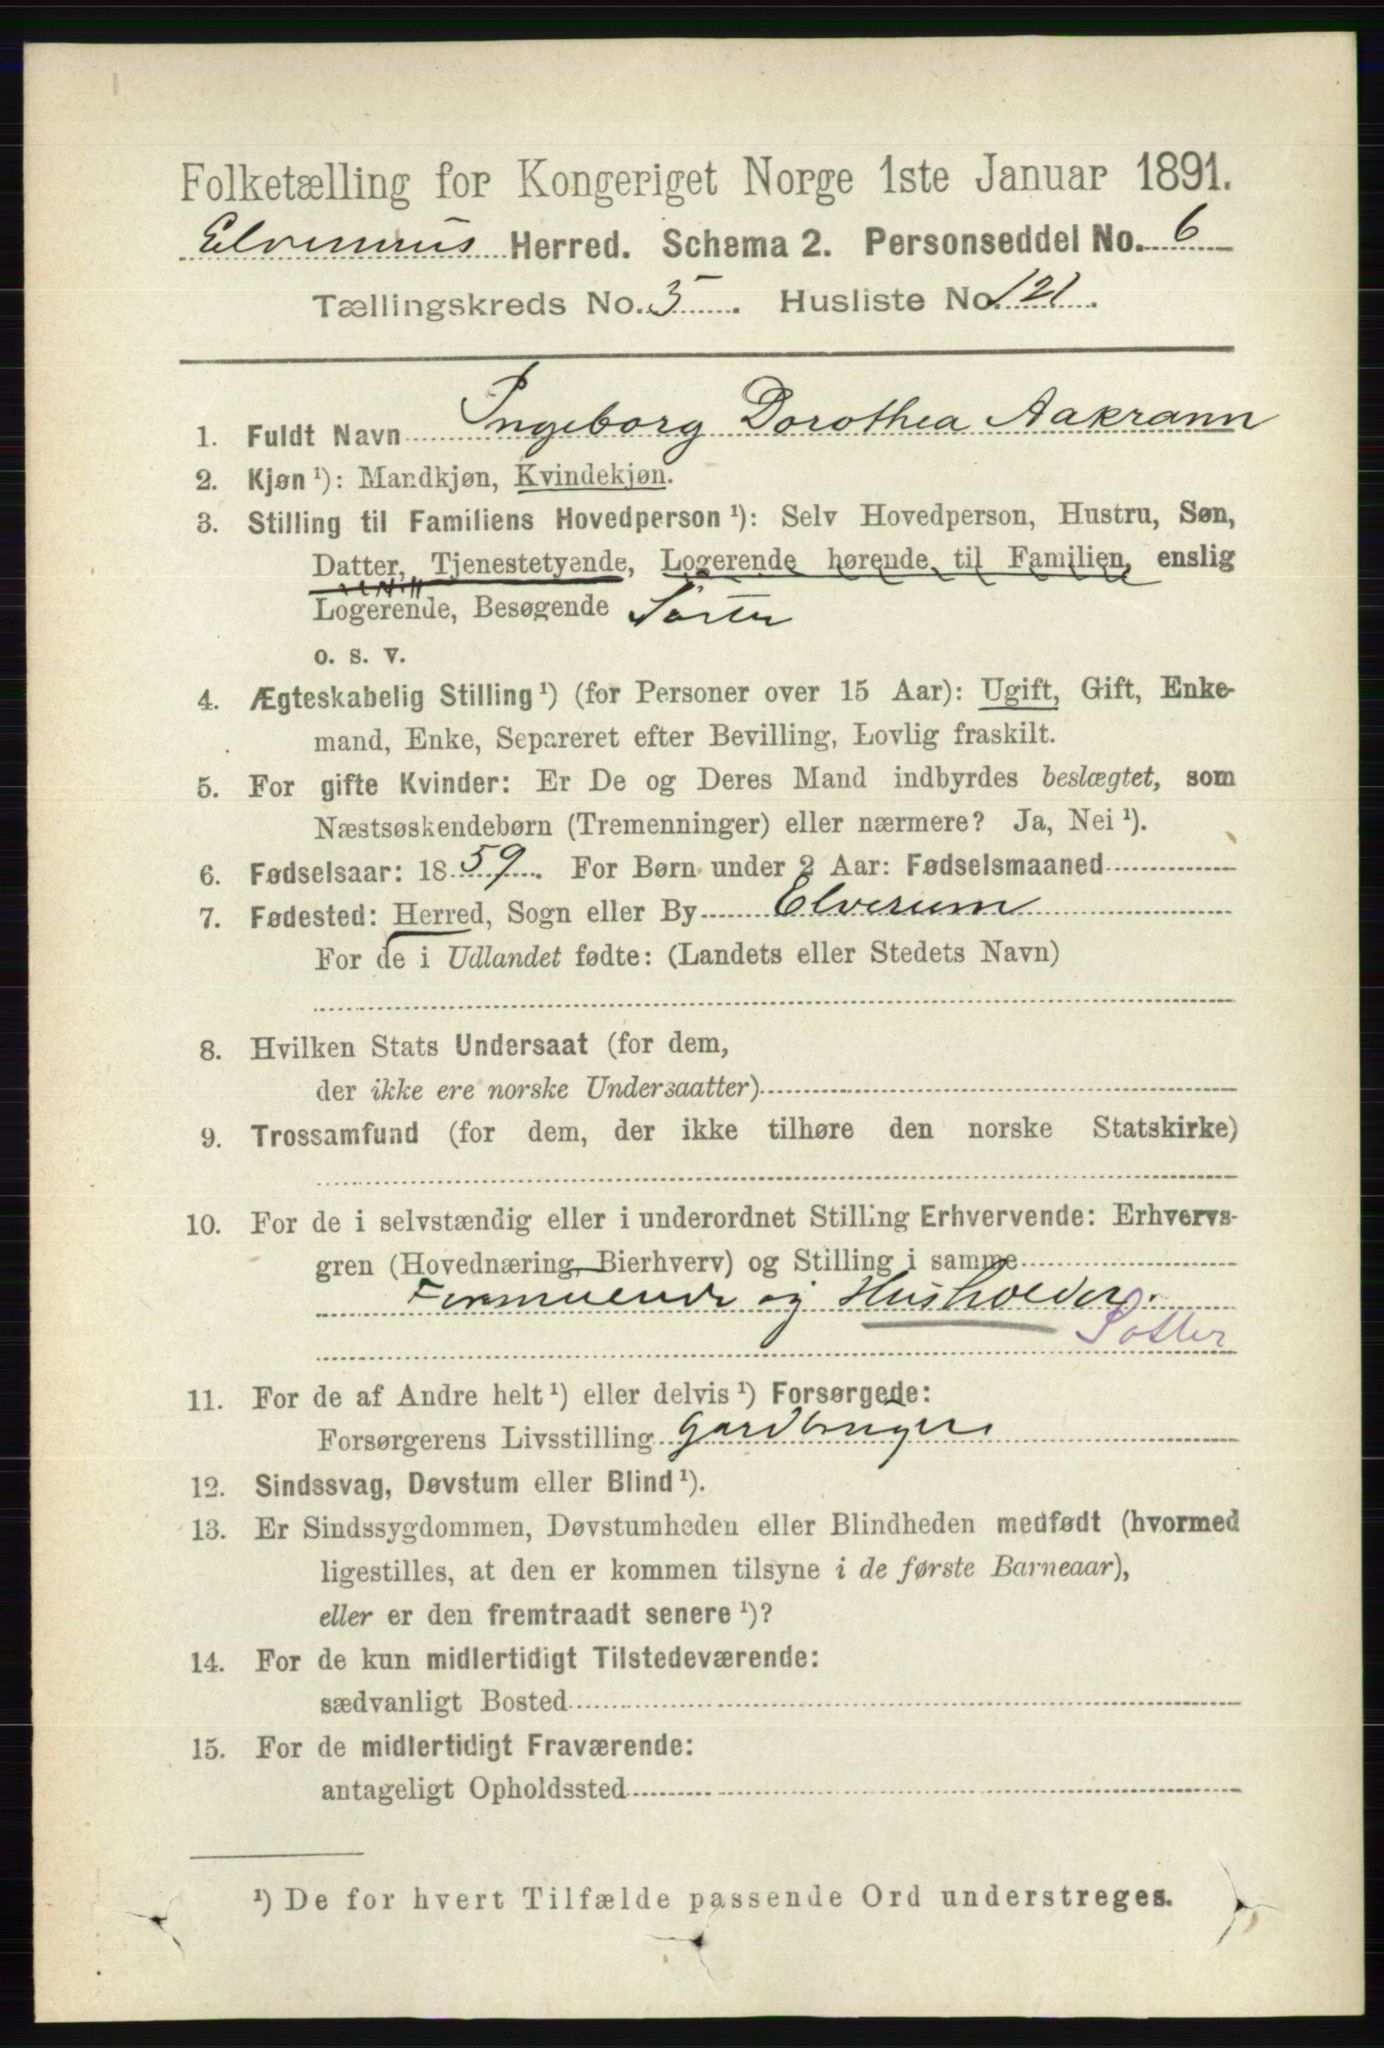 Folketælling for Kongeriget Norge 1ste Januar 1891.
Elverums Herred. Schema 2. Personseddel No. 6
Tællingskreds No. 5. Husliste No. 121.
1. Fuldt Navn Ingeborg Dorothea Aakrann
2. Kjøn ¹): Mandkjøn, Kvindekjøn.
3. Stilling til Familiens Hovedperson ¹): Selv Hovedperson, Hustru, Søn,
Datter, Tjenestetyende, Logerende hørende til Familien, enslig
Logerende, Besøgende Søster
o. s. v.
4. Ægteskabelig Stilling ¹) (for Personer over 15 Aar): Ugift, Gift, Enke-
mand, Enke, Separeret efter Bevilling, Lovlig fraskilt.
5. For gifte Kvinder: Er De og Deres Mand indbyrdes beslægtet, som
Næstsøskendebørn (Tremenninger) eller nærmere? Ja, Nei ¹).
6. Fødselsaar: 1859. For Børn under 2 Aar: Fødselsmaaned
7. Fødested: Herred, Sogn eller By Elverum
For de i Udlandet fødte: (Landets eller Stedets Navn)
8. Hvilken Stats Undersaat (for dem,
der ikke ere norske Undersaatter)
9. Trossamfund (for dem, der ikke tilhøre den norske Statskirke)
10. For de i selvstændig eller i underordnet Stilling Erhvervende: Erhvervs-
gren (Hovednæring, Bierhverv) og Stilling i samme
Formuende og Husholder.
11. For de af Andre helt ¹) eller delvis ¹) Forsørgede:
Forsørgerens Livsstilling Gardbruger
12. Sindssvag, Døvstum eller Blind ¹).
13. Er Sindssygdommen, Døvstumheden eller Blindheden medfødt (hvormed
ligestilles, at den er kommen tilsyne i de første Barneaar),
eller er den fremtraadt senere ¹)?
14. For de kun midlertidigt Tilstedeværende:
sædvanligt Bosted
15. For de midlertidigt Fraværende:
antageligt Opholdssted
¹) De for hvert Tilfælde passende Ord understreges.